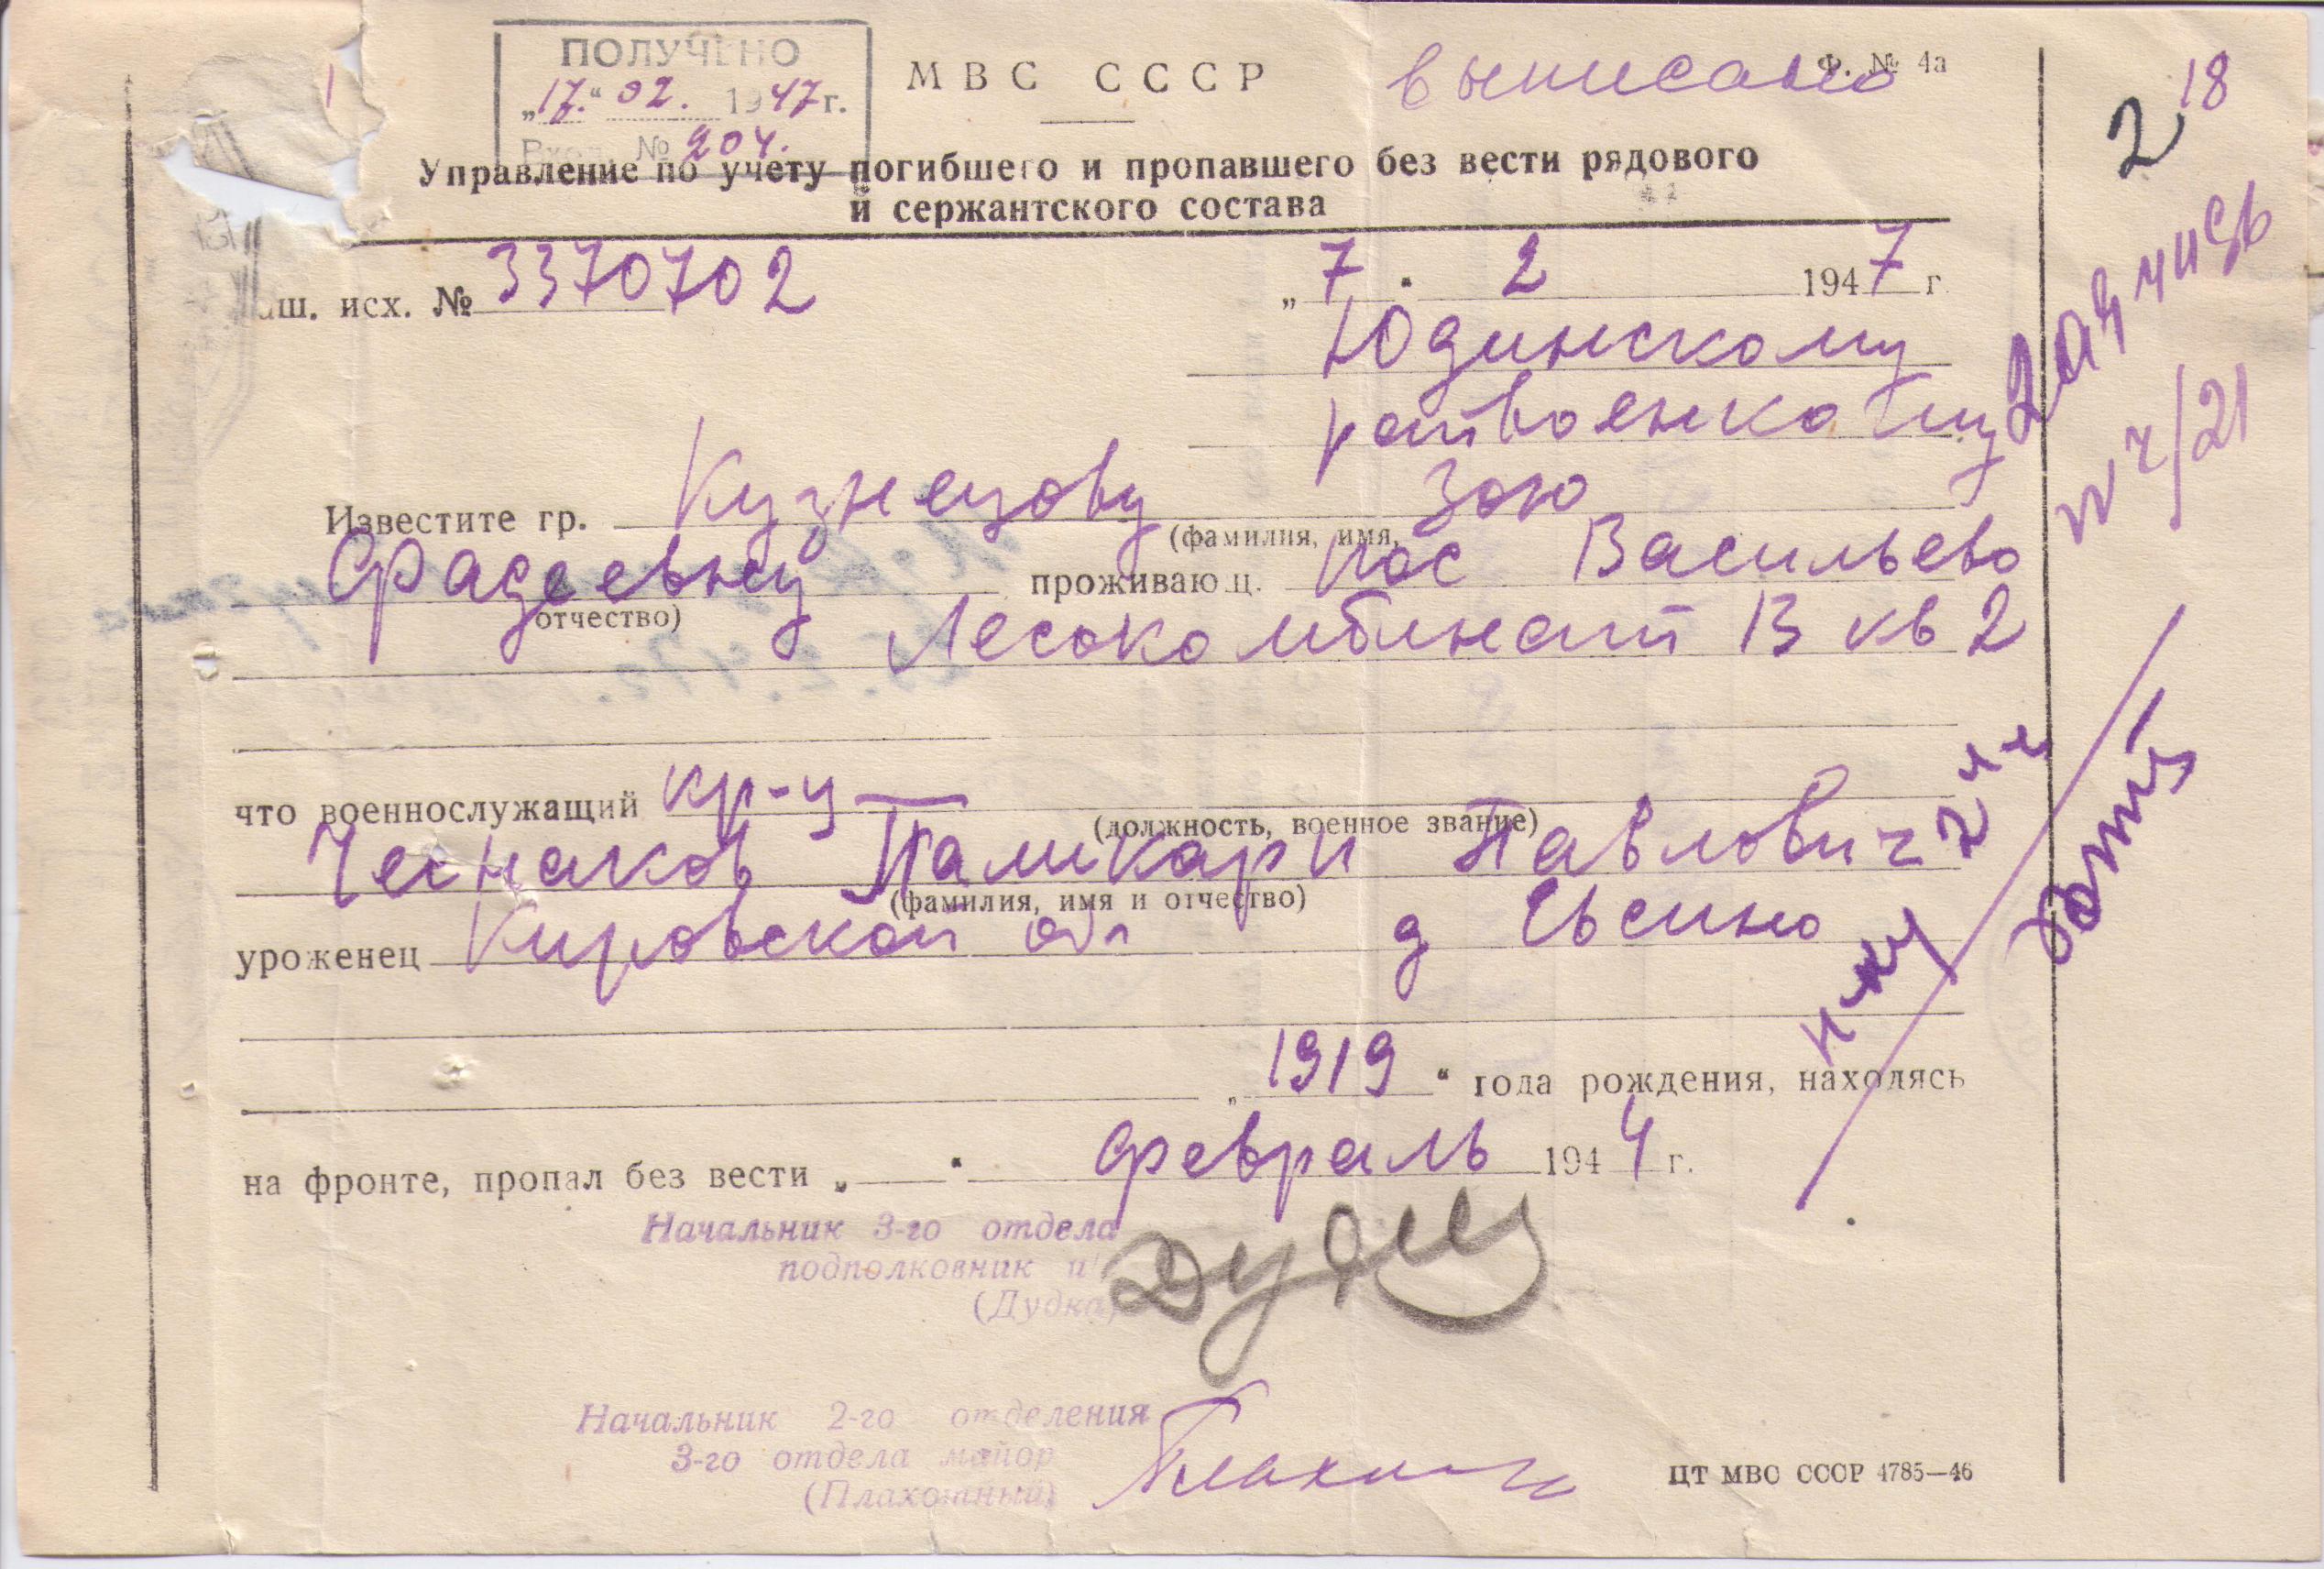 ПОЛУЧЕНО
„17.“ 02. 1947 г.
Вход. № 204.
МВС СССР
выписано
Ф. № 4а
2 18
Управление по учету погибшего и пропавшего без вести рядового
и сержантского состава
аш. исх. № 3370702
„7“ 2 1947 г.
Юдинскому
райвоенкому
Известите гр. Кузнецову Зою
(фамилия, имя,
Фадеевну проживающ. пос Васильево
отчество)
Лесокомбинат 13 кв 2
что военнослужащий кр-ц
(должность, военное звание)
Чеснаков Памикарп Павлович
(фамилия, имя и отчество)
уроженец Кировской обл д Евсино
„1919“ года рождения, находясь
на фронте, пропал без вести „—“ февраль 1944 г.
Начальник 3-го отдела
подполковник и
(Дудка)
Начальник 2-го отделения
3-го отдела майор
(Плахотный)
ЦТ МВС СССР 4785—46